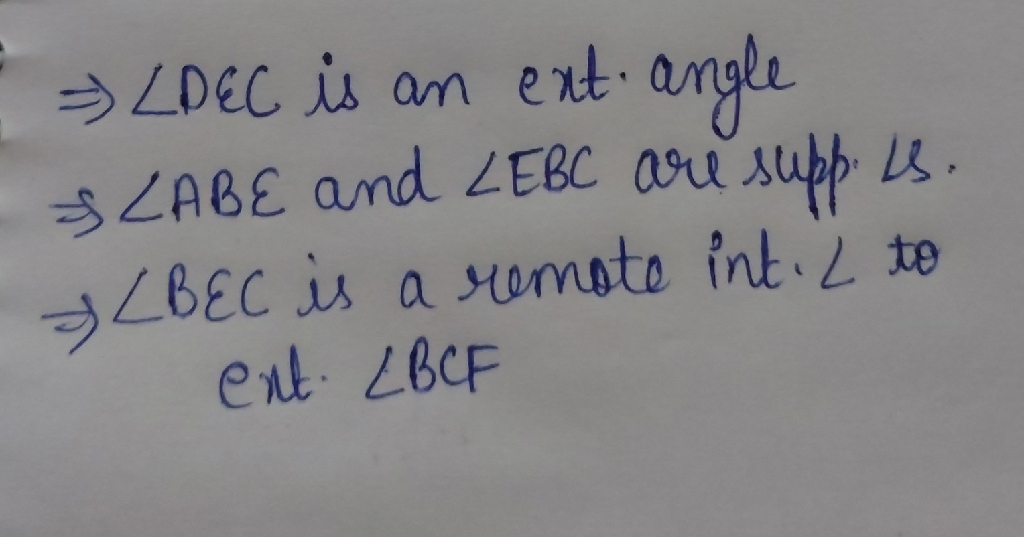 ⇒ ∠DEC is an ext. angle
⇒ ∠ABE and ∠EBC are supp. ∠s.
⇒ ∠BEC is a remote int. ∠ to
ext. ∠BCF